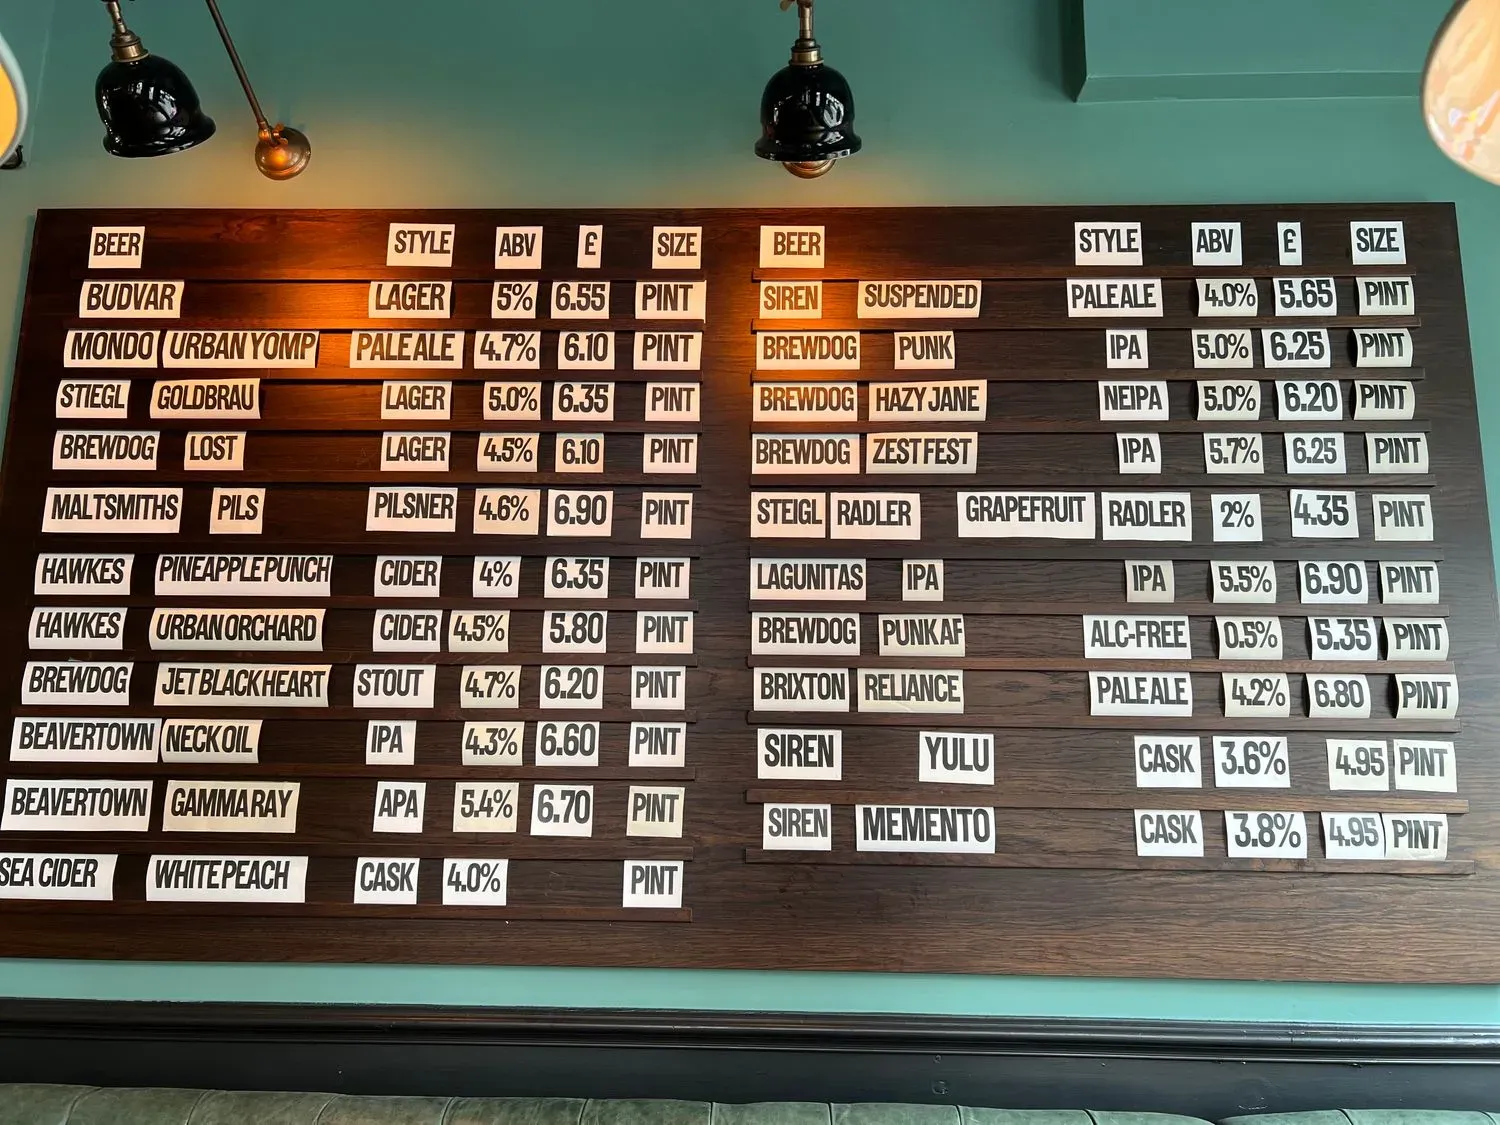 BEER STYLE ABV £ SIZE
BUDVAR LAGER 5% 6.55 PINT
MONDO URBAN YOMP PALE ALE 4.7% 6.10 PINT
STIEGL GOLDBRAU LAGER 5.0% 6.35 PINT
BREWDOG LOST LAGER 4.5% 6.10 PINT
MALTSMITHS PILS PILSNER 4.6% 6.90 PINT
HAWKES PINEAPPLE PUNCH CIDER 4% 6.35 PINT
HAWKES URBAN ORCHARD CIDER 4.5% 5.80 PINT
BREWDOG JET BLACK HEART STOUT 4.7% 6.20 PINT
BEAVERTOWN NECK OIL IPA 4.3% 6.60 PINT
BEAVERTOWN GAMMA RAY APA 5.4% 6.70 PINT
SEA CIDER WHITE PEACH CASK 4.0% PINT
BEER STYLE ABV £ SIZE
SIREN SUSPENDED PALE ALE 4.0% 5.65 PINT
BREWDOG PUNK IPA 5.0% 6.25 PINT
BREWDOG HAZY JANE NEIPA 5.0% 6.20 PINT
BREWDOG ZEST FEST IPA 5.7% 6.25 PINT
STEIGL RADLER GRAPEFRUIT RADLER 2% 4.35 PINT
LAGUNITAS IPA IPA 5.5% 6.90 PINT
BREWDOG PUNK AF ALC-FREE 0.5% 5.35 PINT
BRIXTON RELIANCE PALE ALE 4.2% 6.80 PINT
SIREN YULU CASK 3.6% 4.95 PINT
SIREN MEMENTO CASK 3.8% 4.95 PINT